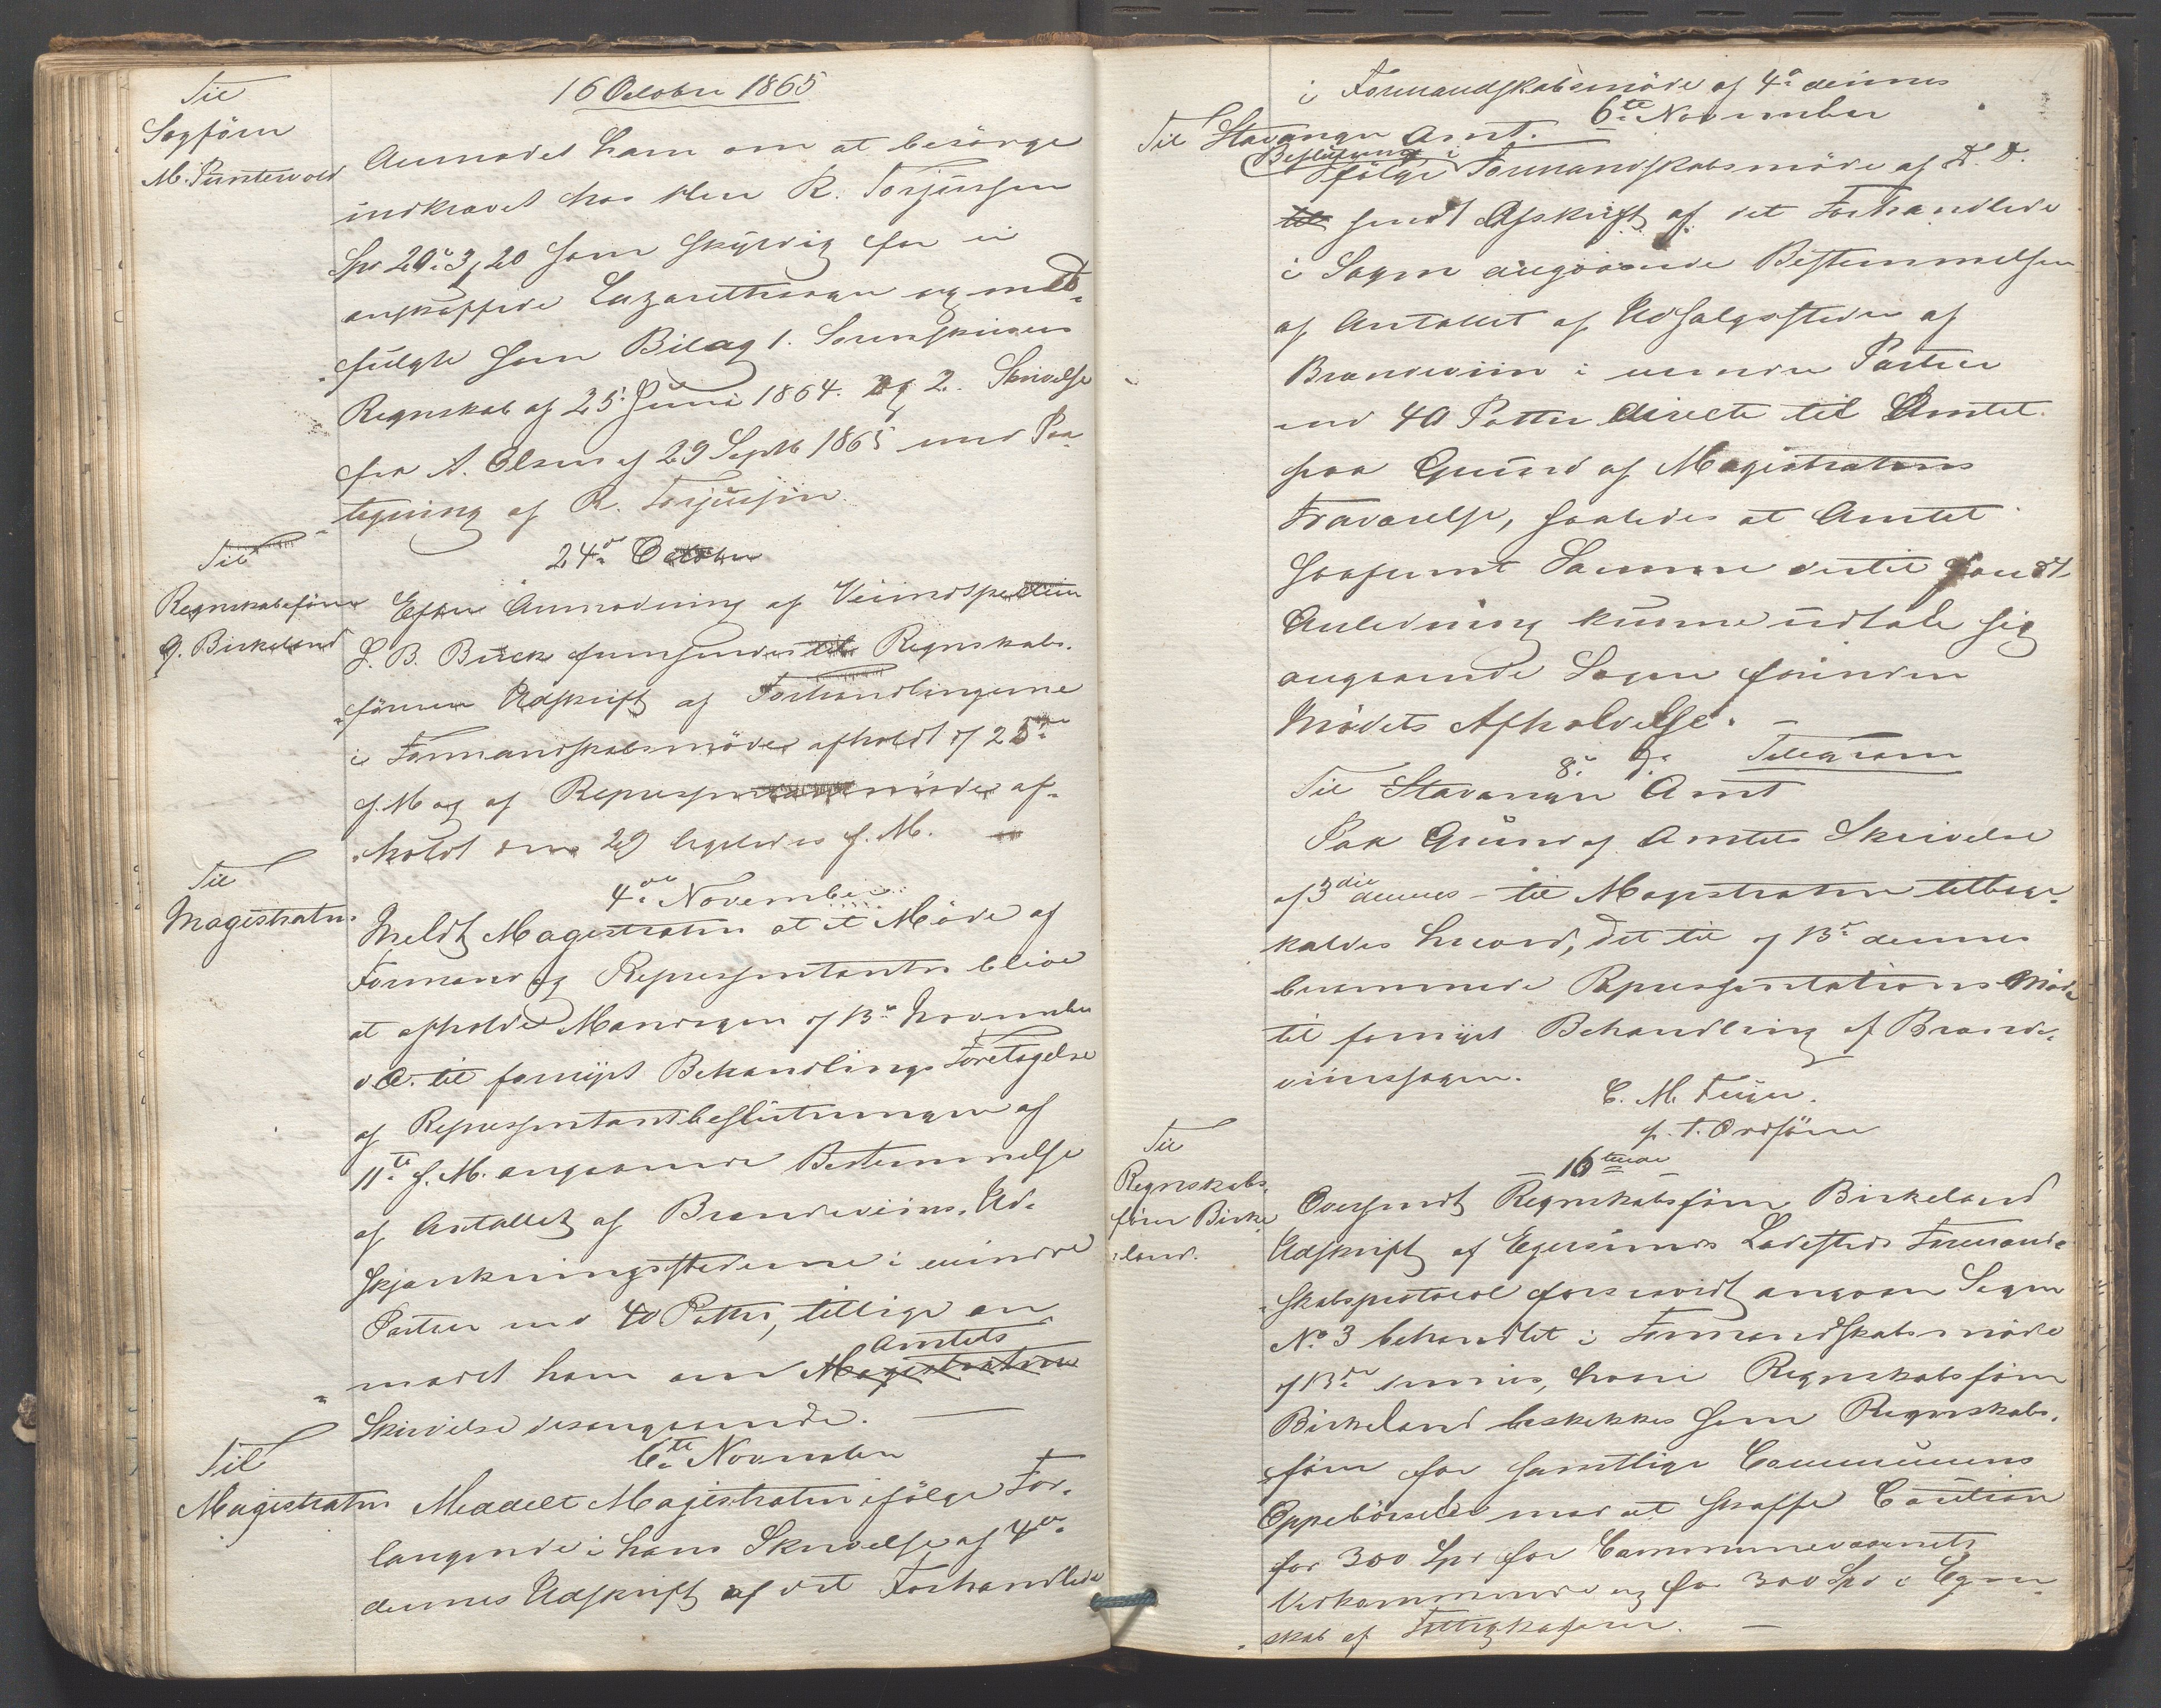 16 Octobr 1865
Til
Sagfører
M. Puntervold
Anmodet ham om at besørge
indkrævet hos Herr R. Torjussen
Spd 20. 3, 20 som skyldig for ei
anskaffede Lazarethsager og med-
fulgte som Bilag 1. Torjussens
Regnskab af 25. Juni 1864. og 2. Skrivelse
fra A. Olsen af 29 Septb 1865 med Paa-
tegning af R. Torjussen.
24de October
Til
Regnskabsfører
G. Birkeland
Efter Anmodning af Veiinspecteur
L. B. Buck fremsendes til Regnskabs-
føreren Udskrift af Forhandlingerne
i Formandskabsmøder afholdt d 25de
f. M og af Repræsentantmøder af-
holdt den 29 ligeledes f. M.
4de November
Til
Magistraten
Meldt Magistraten at et Møde af
Formænd og Repræsentanter blive
at afholde Mandagen d 13de November
d. A. til fornyet Behandlings Foretagelse
af Repræsentantbeslutningen af
11te f. M. angaaende Bestemmelse
af Antallet af Brændeviins-Ud-
skjænkningsstederne i mindre
Partier end 40 Potter, tillige an-
modet ham om Magistratens Amtets
Skrivelse desangaaende.
6te November
Til
Magistraten
Meddelt Magistraten ifølge For-
langende i hans Skrivelse af 4de
dennes Udskrift af det Forhandlede
i Formandskabsmøde af 4de dennes
6te November
Til Stavanger Amt.
Beslutning i
Ifølge Formandskabsmøde af D. D.
til sendt Afskrift af det Forhandlede
i Sagen angaaende Bestemmelsen
af Antallet af Udsalgssteder af
Brændeviin i mindre Partier
end 40 Potter directe til Amtet
paa Grund af Magistratens
Fraværelse, saaledes at Amtet
saafremt Samme dertil fandt
Anledning kunne udtale sig
angaaende Sagen forinden
Mødets Afholdelse. –
8de do Telegram
Til Stavanger Amt
Paa Grund af Amtets Skrivelse
af 3die dennes – til Magistraten tilbage-
kaldes herved, det til d 13de dennes
berammede Repræsentations Møde
til fornyet Behandling af Brænde-
viinssagen.
C. M. Feyer.
p. t. Ordfører
16tende
Til
Regnskabs-
fører Birke-
land.
Oversendt Regnskabsfører Birkeland
Udskrift af Egersunds Ladesteds Formand-
skabsprotocol forsaavidt angaar Sagen
No 3 behandlet i Formandskabsmøde
d 13de dennes, hvori Regnskabsfører
Birkeland beskikkes som Regnskabs-
fører for samtlige Communens
Oppebørseler mod at skaffe Caution
for 300 Spd for Communevæsenets
Vedkommende og for 300 Spd i Egen-
skab af Fattigkasserer. –